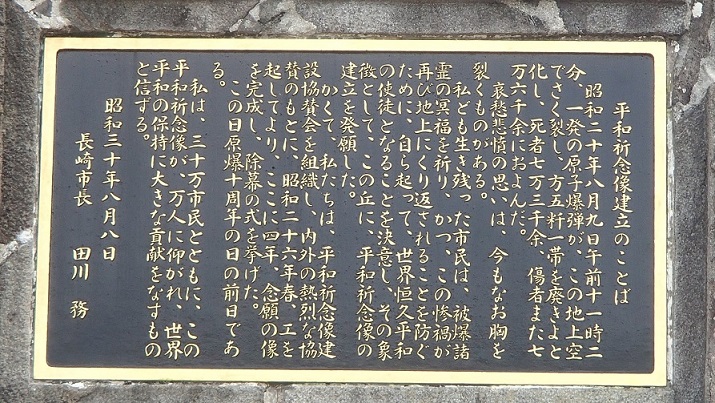 平和祈念像建立のことば
昭和二十年八月九日午前十一時二
分、一発の原子爆弾が、この地上空
でさく裂し、方五粁一帯を廃きょと
化し、死者七万三千余、傷者また七
万六千余におよんだ。
哀愁悲憤の思いは、今もなお胸を
裂くものがある。
私ども生き残った市民は、被爆諸
霊の冥福を祈り、かつ、この惨禍が
再び地上にくり返されることを防ぐ
ために、自ら起って、世界恒久平和
の使徒となることを決意し、その象
徴として、この丘に、平和祈念像の
建立を発願した。
かくて、私たちは、平和祈念像建
設協賛会を組織し、内外の熱烈な協
賛のもとに、昭和二十六年春、工を
起してより、ここに四年、念願の像
を完成し、除幕の式を挙げた。
この日原爆十周年の日の前日であ
る。
私は、三十万市民とともに、この
平和祈念像が、万人に仰がれ、世界
平和の保持に大きな貢献をなすもの
と信ずる。
昭和三十年八月八日
長崎市長 田川 務